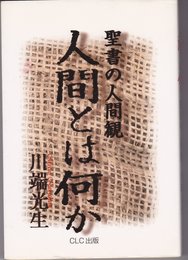 聖書の人間観
人間とは何か
川端光生
CLC出版